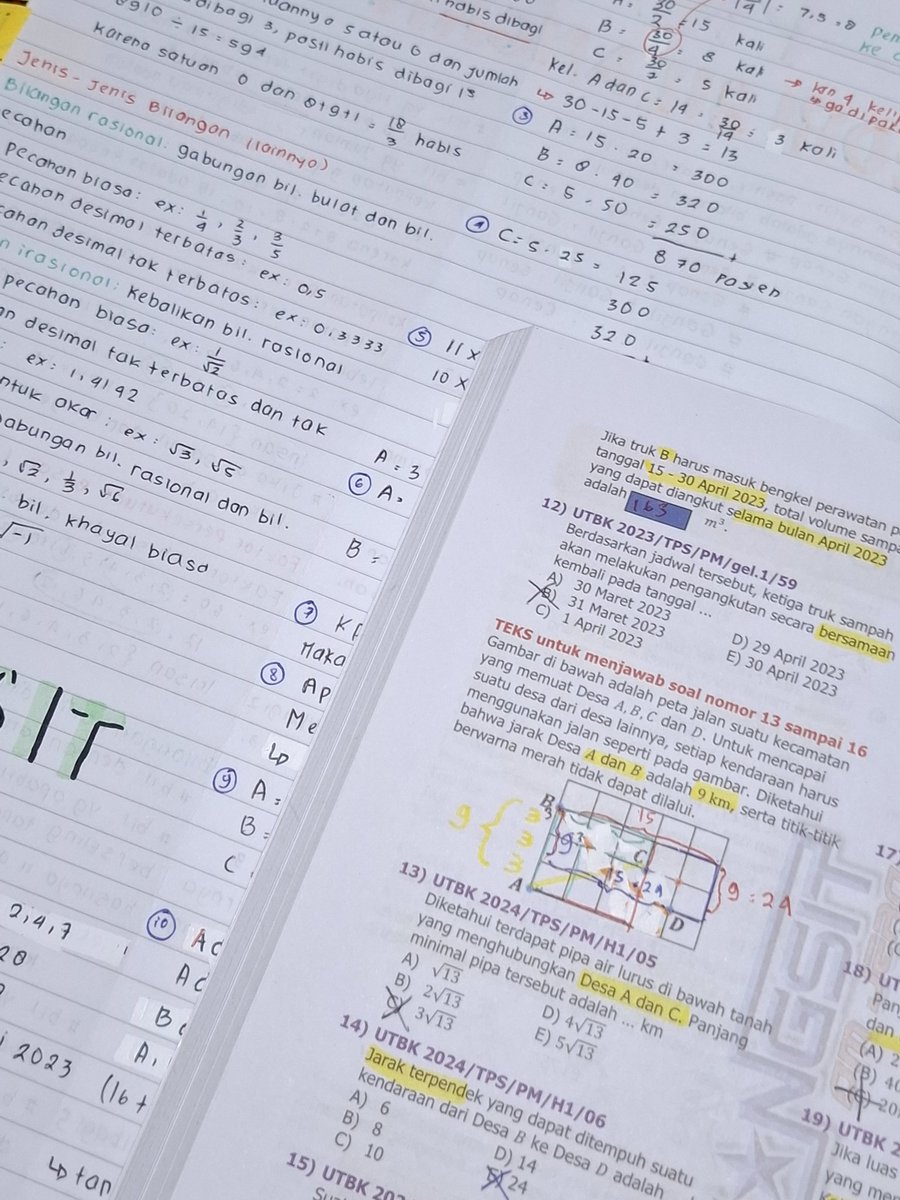 ÷ 15 = 594
dibagi 3, pasti habis dibagi 15
satuannya 5 atau 0 dan jumlah
karena satuan 0 dan 8+9+1 = 18/3 habis
Jenis - Jenis Bilangan (lainnya)
Bilangan rasional: gabungan bil. bulat dan bil.
pecahan biasa: ex: 1/4, 2/3, 3/5
desimal terbatas: ex: 0,5
desimal tak terbatas: ex: 0,3333
irasional: kebalikan bil. rasional
pecahan biasa: ex: 1/√2
desimal tak terbatas dan tak
ex: 1,4142
akar: ex: √3, √5
bil. rasional dan bil.
√2, 1/3, √6
bil. khayal biasa
√-1
SIT
2,4,7
2023 (16 +
↳ tan
habis dibagi
B = 30/2 = 15 kali
C = 30/4 = 8 kali
30/7 = 5 kali
7,5 = 8
kel. A dan C = 14 = 30/14 = 3 kali
↳ 30 - 15 - 5 + 3 = 13
③ A = 15 . 20 = 300
B = 8 . 40 = 320
C = 5 . 50 = 250 +
870 Pasien
④ C = 5 . 25 = 125
300
320
⑤ 11 x
10 x
A = 3
⑥ A =
B =
⑦
Maka
⑧ Ap
Me
↳
⑨ A =
B =
C
⑩ AC
AC
Jika truk B harus masuk bengkel perawatan
tanggal 15 - 30 April 2023, total volume
yang dapat diangkut selama bulan April 2023
adalah 163 m³.
12) UTBK 2023/TPS/PM/gel.1/59
Berdasarkan jadwal tersebut, ketiga truk sampah
akan melakukan pengangkutan secara bersamaan
kembali pada tanggal ...
A) 30 Maret 2023
B) 31 Maret 2023
C) 1 April 2023
D) 29 April 2023
E) 30 April 2023
TEKS untuk menjawab soal nomor 13 sampai 16
Gambar di bawah adalah peta jalan suatu kecamatan
yang memuat Desa A, B, C dan D. Untuk mencapai
suatu desa dari desa lainnya, setiap kendaraan harus
menggunakan jalan seperti pada gambar. Diketahui
bahwa jarak Desa A dan B adalah 9 km, serta titik-titik
berwarna merah tidak dapat dilalui.
B
15
9 { 3
3
3
9
C
9 = 24
A
D
13) UTBK 2024/TPS/PM/H1/05
Diketahui terdapat pipa air lurus di bawah tanah
yang menghubungkan Desa A dan C. Panjang
minimal pipa tersebut adalah ... km
A) √13
B) 2√13
C) 3√13
D) 4√13
E) 5√13
14) UTBK 2024/TPS/PM/H1/06
Jarak terpendek yang dapat ditempuh suatu
kendaraan dari Desa B ke Desa D adalah
A) 6
B) 8
C) 10
D) 14
24
15) UTBK
17)
18) UT
Pan
dan
(A) 2
(B) 40
20
19) UTBK 2
Jika luas
yang
NGSIT